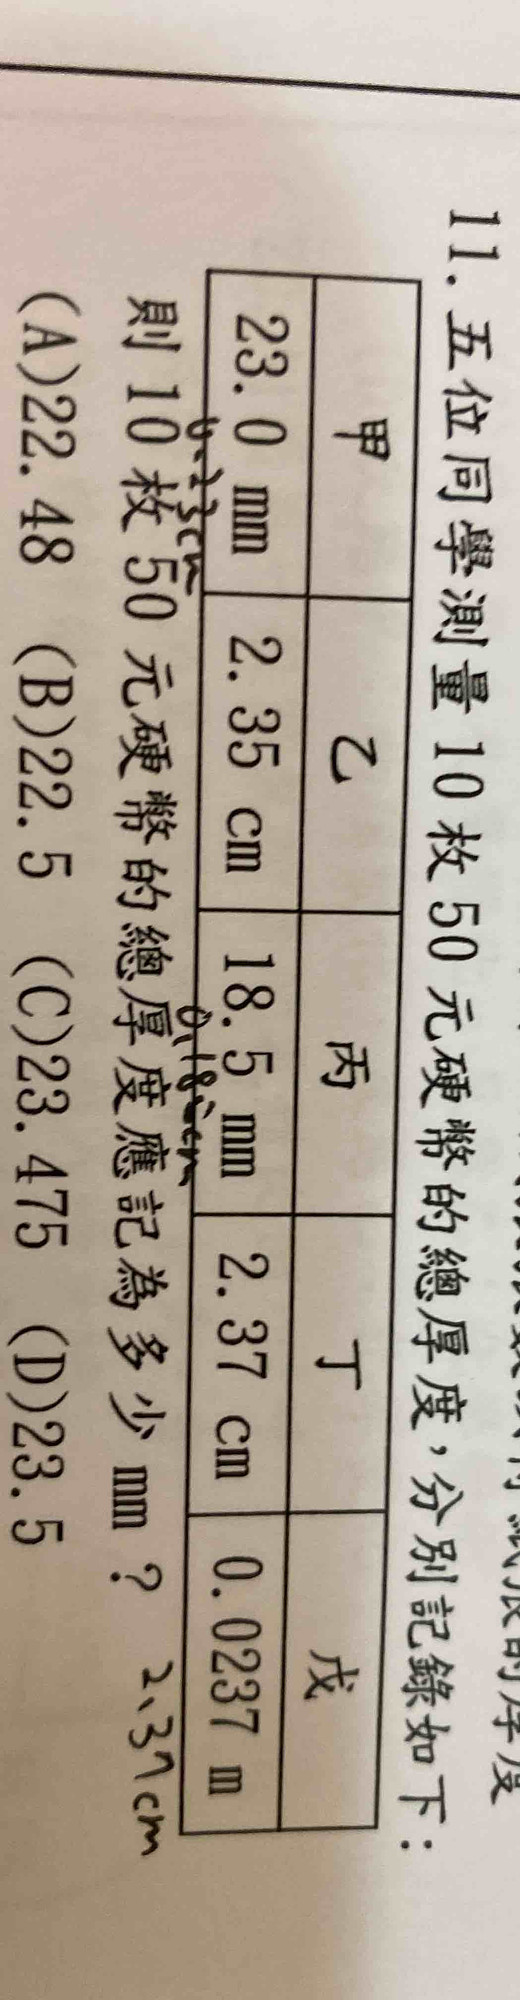 11. 五位同學測量10枚50元硬幣的總厚度，分別記錄如下：
甲 乙 丙 丁 戊
23.0 mm 2.35 cm 18.5 mm 2.37 cm 0.0237 m
則10枚50元硬幣的總厚度應記為多少mm？ 2.37cm
(A)22.48 (B)22.5 (C)23.475 (D)23.5